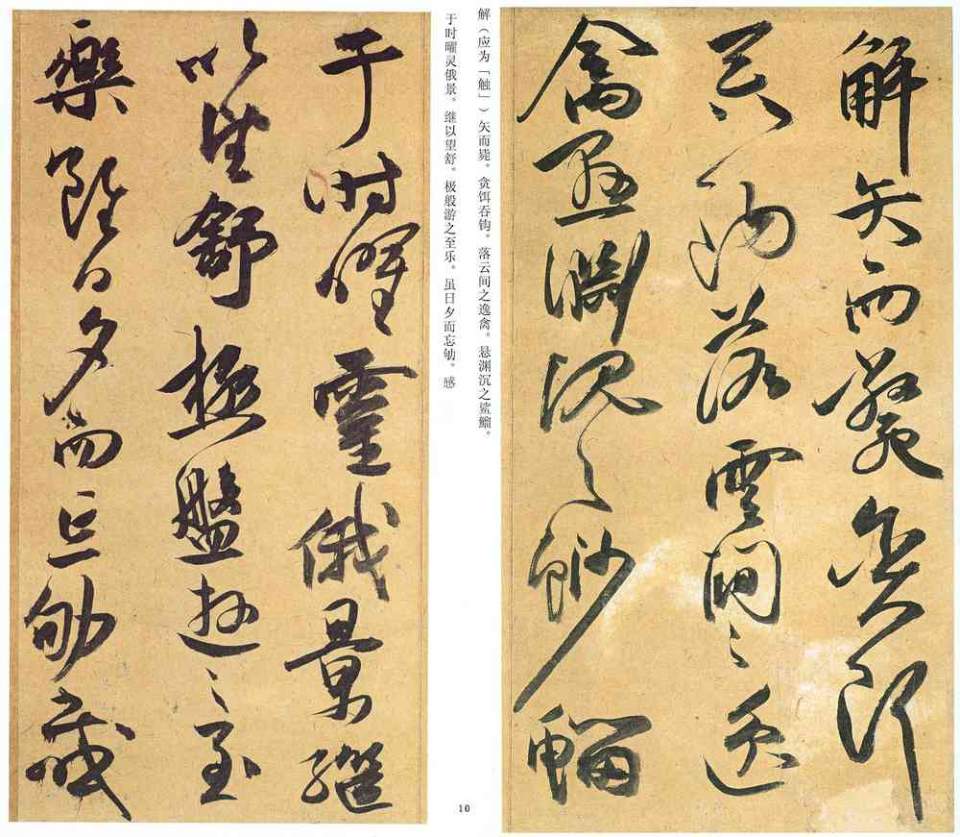 解矢而斃貪餌
吞鉤落雲間之逸
禽懸淵沉之魦鰡
解（应为「触」）矢而毙。贪饵吞钩。落云间之逸禽。悬渊沉之鲨鰡。
于时曜灵俄景。继以望舒。极般游之至乐。虽日夕而忘劬。感
于時曜靈俄景繼
以望舒極盤遊之至
樂雖日夕而忘劬感
10